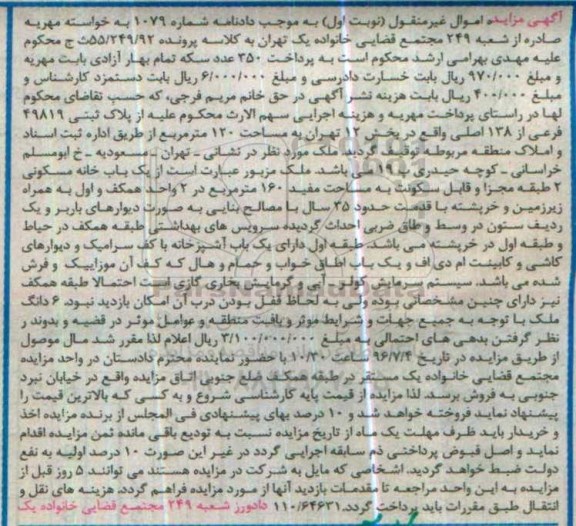 آگهی مزایده اموال غیرمنقول (نوبت اول) به موجب دادنامه شماره ۱۰۷۹ به خواسته مهریه
صادره از شعبه ۲۴۹ مجتمع قضایی خانواده یک تهران به کلاسه پرونده ۵۵/۲۴۹/۹۲ث ج محکوم
علیه مهدی بهرامی ارشد محکوم است به پرداخت ۳۵۰ عدد سکه تمام بهار آزادی بابت مهریه
و مبلغ ۹۷۰/۰۰۰ ریال بابت خسارت دادرسی و مبلغ ۶/۰۰۰/۰۰۰ ریال بابت دستمزد کارشناس و
مبلغ ۴۰۰/۰۰۰ ریال بابت هزینه نشر آگهی در حق خانم مریم فرجی، که حسب تقاضای محکوم
لها در راستای پرداخت مهریه و هزینه اجرایی سهم الارث محکوم علیه از پلاک ثبتی ۴۹۸۱۹
فرعی از ۱۳۸ اصلی واقع در بخش ۱۲ تهران به مساحت ۱۲۰ مترمربع از طریق اداره ثبت اسناد
و املاک منطقه مربوطه توقیف گردید ملک مورد نظر در نشانی - تهران - مسعودیه - خ ابومسلم
خراسانی - کوچه حیدری پ ۱۹ می باشد. ملک مزبور عبارت است از یک باب خانه مسکونی
۲ طبقه مجزا و قابل سکونت به مساحت مفید ۱۶۰ مترمربع در ۲ واحد همکف و اول به همراه
زیرزمین و خرپشته با قدمت حدود ۳۵ سال با مصالح بنایی به صورت دیوارهای باربر و یک
ردیف ستون در وسط و طاق ضربی احداث گردیده سرویس های بهداشتی طبقه همکف در حیاط
و طبقه اول در خرپشته می باشد. طبقه اول دارای یک باب آشپزخانه با کف سرامیک و دیوارهای
کاشی و کابینت ام دی اف و یک باب اطاق خواب و حمام و هال که کف آن موزاییک و فرش
شده می باشد. سیستم سرمایش کولر آبی و گرمایش بخاری گازی است احتمالا طبقه همکف
نیز دارای چنین مشخصاتی بوده ولی به لحاظ قفل بودن درب آن امکان بازدید نبود. ۶ دانگ
ملک با توجه به جمیع جهات و شرایط موثر و بافت منطقه و عوامل موثر در قضیه و بدوند ر
نظر گرفتن بدهی های احتمالی به مبلغ ۳/۱۰۰/۰۰۰/۰۰۰ ریال اعلام لذا مقرر شد مال موصول
از طریق مزایده در تاریخ ۹۶/۷/۴ ساعت ۱۰/۳۰ با حضور نماینده محترم دادستان در واحد مزایده
مجتمع قضایی خانواده یک مستقر در طبقه همکف ضلع جنوبی اتاق مزایده واقع در خیابان نبرد
جنوبی به فروش برسد. لذا مزایده از قیمت پایه کارشناسی شروع و به کسی که بالاترین قیمت را
پیشنهاد نماید فروخته خواهد شد و ۱۰ درصد بهای پیشنهادی فی المجلس از برنده مزایده اخذ
و خریدار باید ظرف مهلت یک ماه از تاریخ مزایده نسبت به تودیع باقی مانده ثمن مزایده اقدام
نماید و اصل قبوض پرداختی ذم سابقه اجرایی گردد در غیر این صورت ۱۰ درصد اولیه به نفع
دولت ضبط خواهد گردید. اشخاصی که مایل به شرکت در مزایده هستند می توانند ۵ روز قبل از
مزایده به این واحد مراجعه تا مقدمات بازدید آنها از مورد مزایده فراهم گردد. هزینه های نقل و
انتقال طبق مقررات باید پرداخت گردد. ۱۱۰/۶۴۶۳۱ دادورز شعبه ۲۴۹ مجتمع قضایی خانواده یک